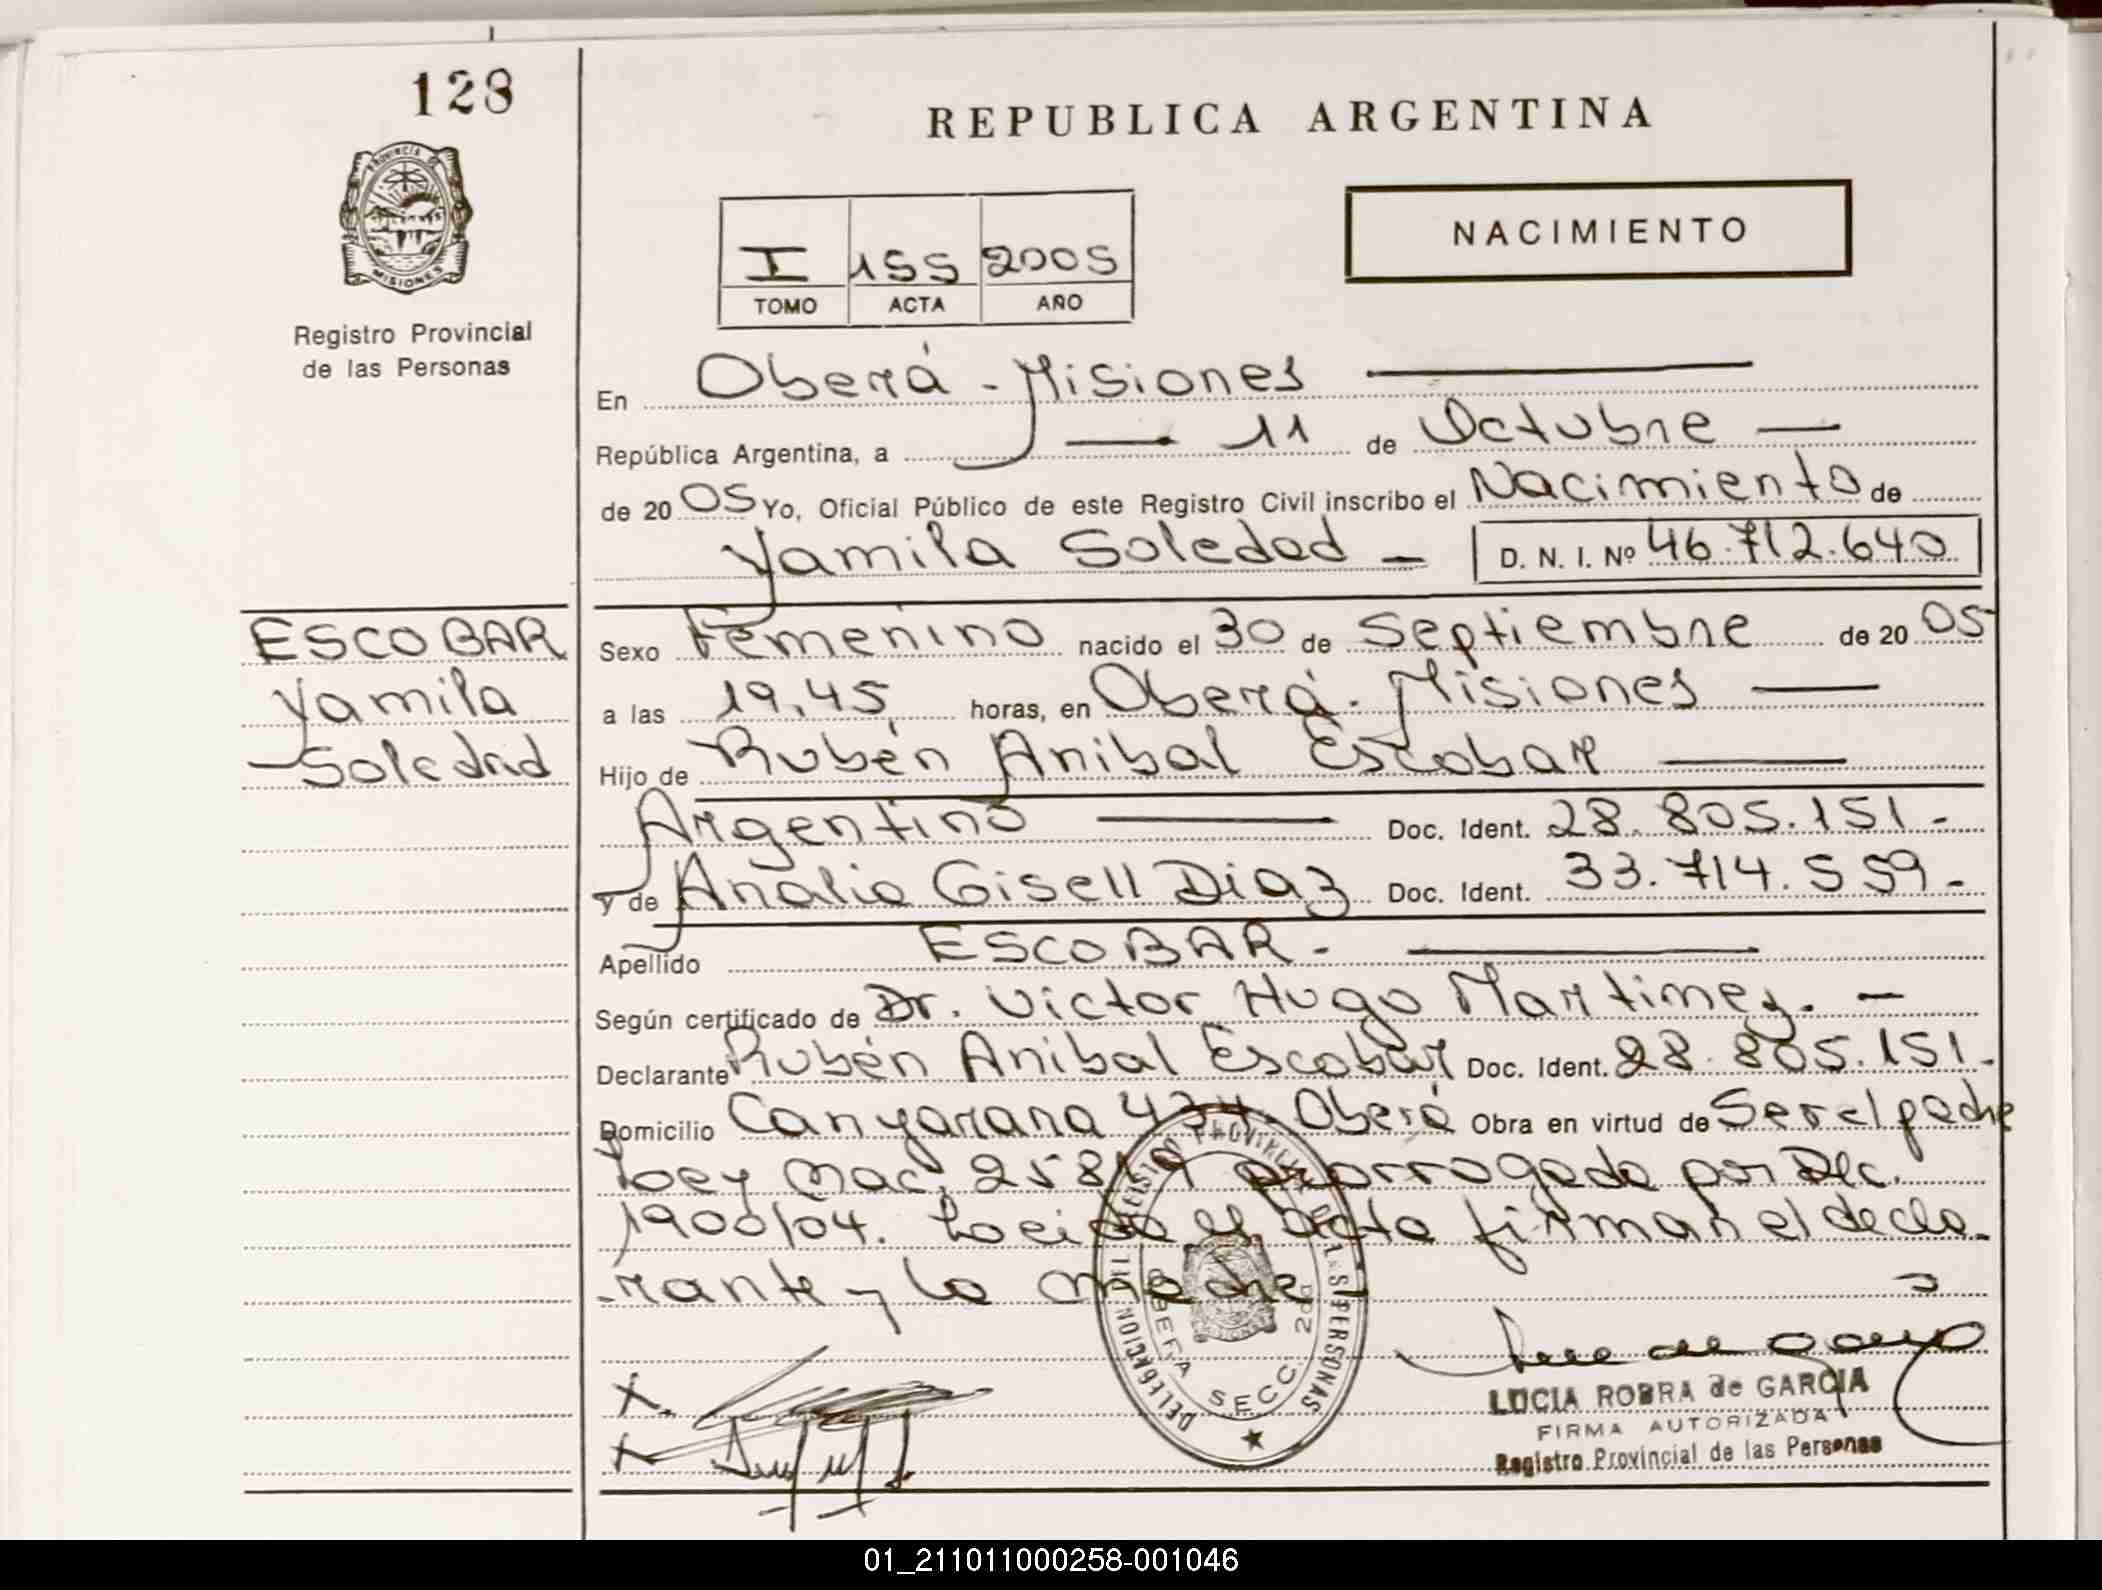 128
REPUBLICA ARGENTINA
PROVINCIA DE
MISIONES
Registro Provincial
de las Personas
I 155 2005
TOMO ACTA AÑO
NACIMIENTO
En Oberá - Misiones
República Argentina, a 11 de Octubre
de 2005 Yo, Oficial Público de este Registro Civil inscribo el Nacimiento de
Yamila Soledad - D. N. I. Nº 46.712.640
ESCOBAR
Yamila
Soledad
Sexo Femenino nacido el 30 de Septiembre de 2005
a las 19,45 horas, en Oberá - Misiones
Hijo de Rubén Anibal Escobar
Argentino Doc. Ident. 28.805.151.-
y de Analia Gisell Diaz Doc. Ident. 33.714.559.-
Apellido ESCOBAR.-
Según certificado de Dr. Victor Hugo Martinez. -
Declarante Rubén Anibal Escobar Doc. Ident. 28.805.151.-
Domicilio 434. Oberá Obra en virtud de Ser el padre
Ley Nac. 25819 prorrogada por Dec.
1900/04. Leida el acta firman el decla-
-rante y la madre
DELEGACION DEL REGISTRO PROVINCIAL DE LAS PERSONAS
OBERA SECC. 2da
X.
X
LUCIA ROBRA de GARCIA
FIRMA AUTORIZADA
Registro Provincial de las Personas
01_211011000258-001046